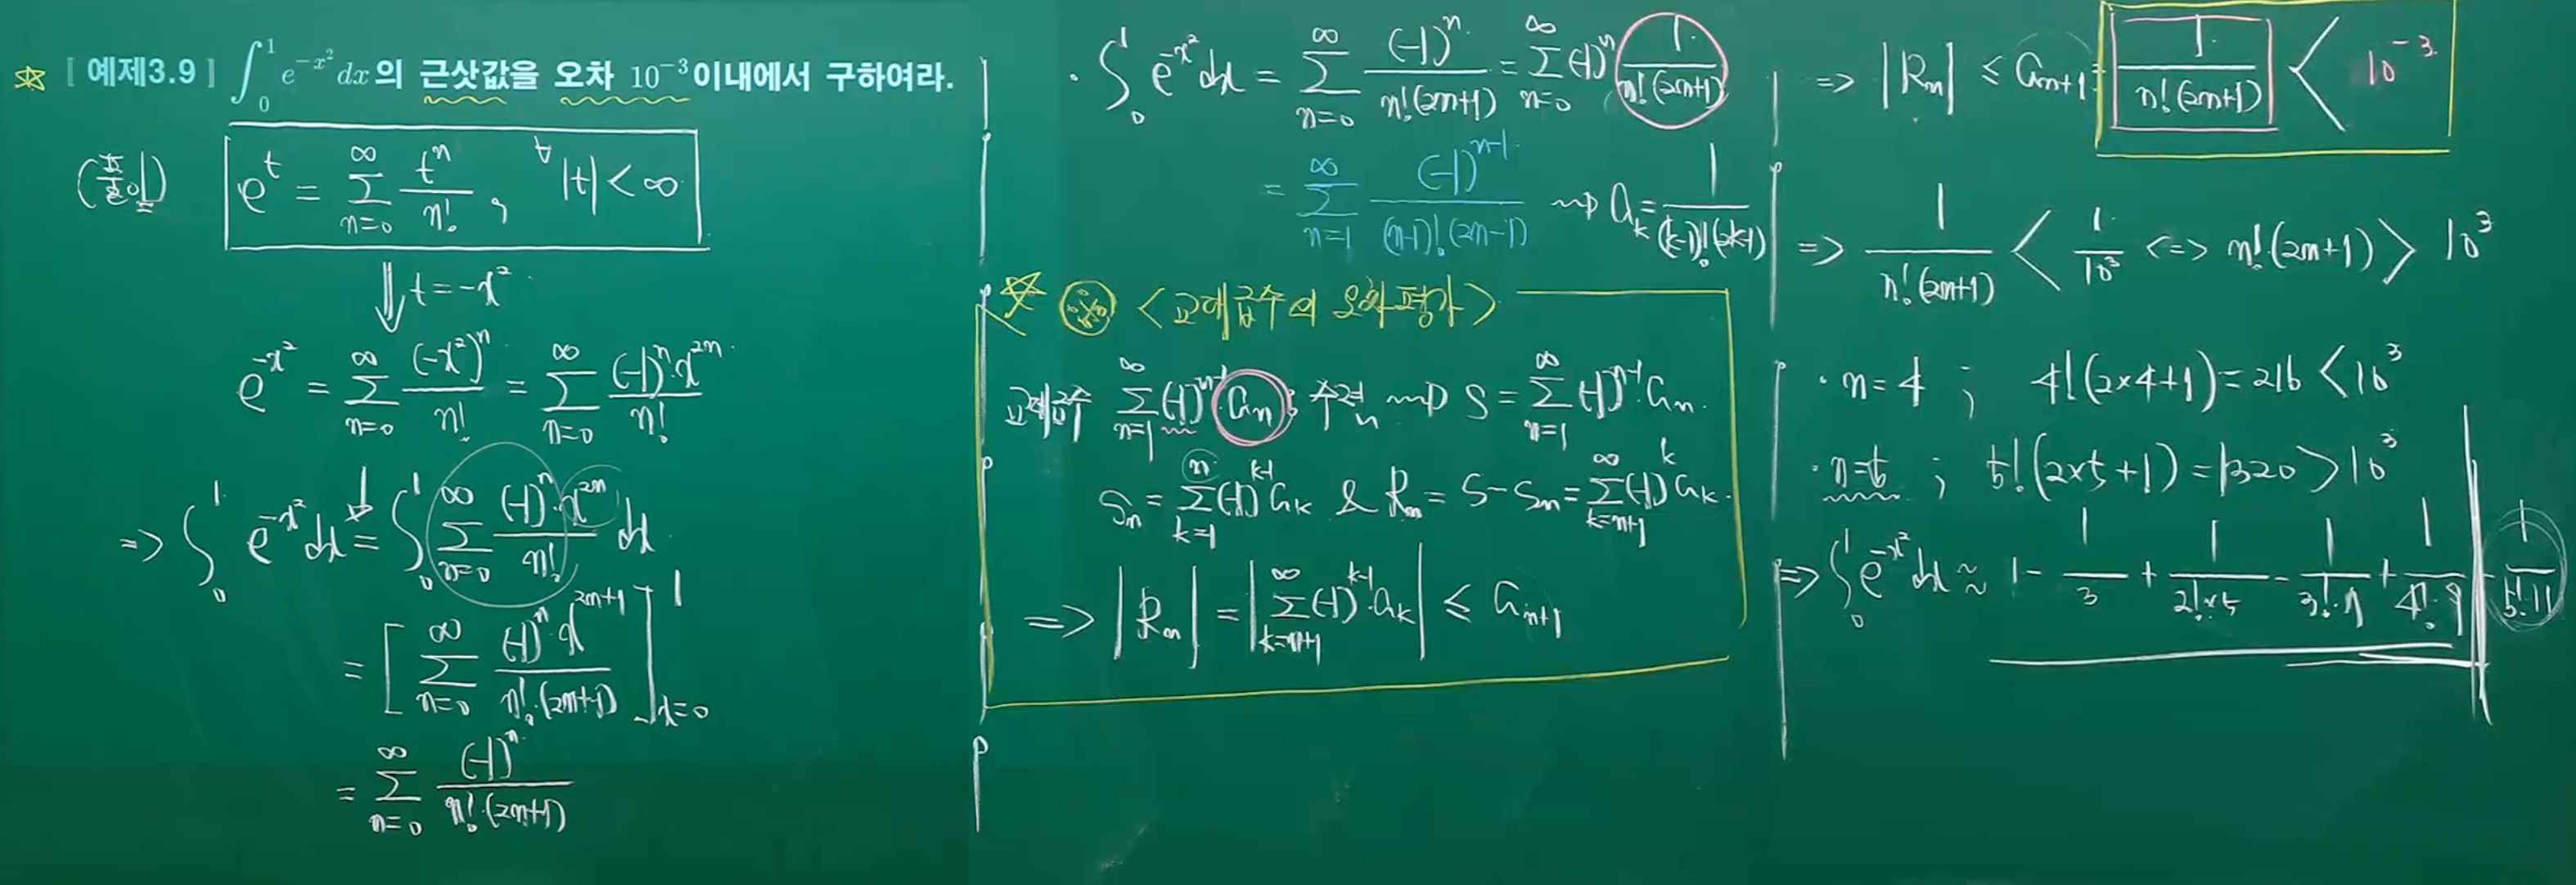 ☆ [ 예제3.9 ] ∫₀¹ e^{-x²} dx 의 근삿값을 오차 10^{-3} 이내에서 구하여라.
(풀이) e^t = Σ_{n=0}^{∞} t^n / n! , ∀|t| < ∞
⇓ t = -x²
e^{-x²} = Σ_{n=0}^{∞} (-x²)^n / n! = Σ_{n=0}^{∞} (-1)^n·x^{2n} / n!
=> ∫₀¹ e^{-x²} dx = ∫₀¹ Σ_{n=0}^{∞} (-1)^n·x^{2n} / n! dx
= [ Σ_{n=0}^{∞} (-1)^n·x^{2n+1} / n!·(2n+1) ]_{x=0}^{1}
= Σ_{n=0}^{∞} (-1)^n / n!·(2n+1)
· ∫₀¹ e^{-x²} dx = Σ_{n=0}^{∞} (-1)^n / n!(2n+1) = Σ_{n=0}^{∞} (-1)^n 1 / n!(2n+1)
= Σ_{n=1}^{∞} (-1)^{n-1} / (n-1)!(2n-1) ⇝ a_k = 1 / (k-1)!(2k-1)
☆ ※ <교대급수의 오차평가>
교대급수 Σ_{n=1}^{∞} (-1)^{n-1} a_n ; 수렴 ⇝ S = Σ_{n=1}^{∞} (-1)^{n-1}·a_n.
S_n = Σ_{k=1}^{n} (-1)^{k-1} a_k & R_n = S - S_n = Σ_{k=n+1}^{∞} (-1)^k a_k.
=> |R_n| = | Σ_{k=n+1}^{∞} (-1)^{k-1}·a_k | ≤ a_{n+1}
=> |R_n| ≤ a_{n+1} = 1 / n!(2n+1) < 10^{-3}
=> 1 / n!(2n+1) < 1 / 10³ <=> n!·(2n+1) > 10³
· n=4 ; 4!(2×4+1) = 216 < 10³
· n=5 ; 5!(2×5+1) = 1320 > 10³
=> ∫₀¹ e^{-x²} dx ≈ 1 - 1/3 + 1/2!×5 - 1/3!·7 + 1/4!·9 - 1/5!·11